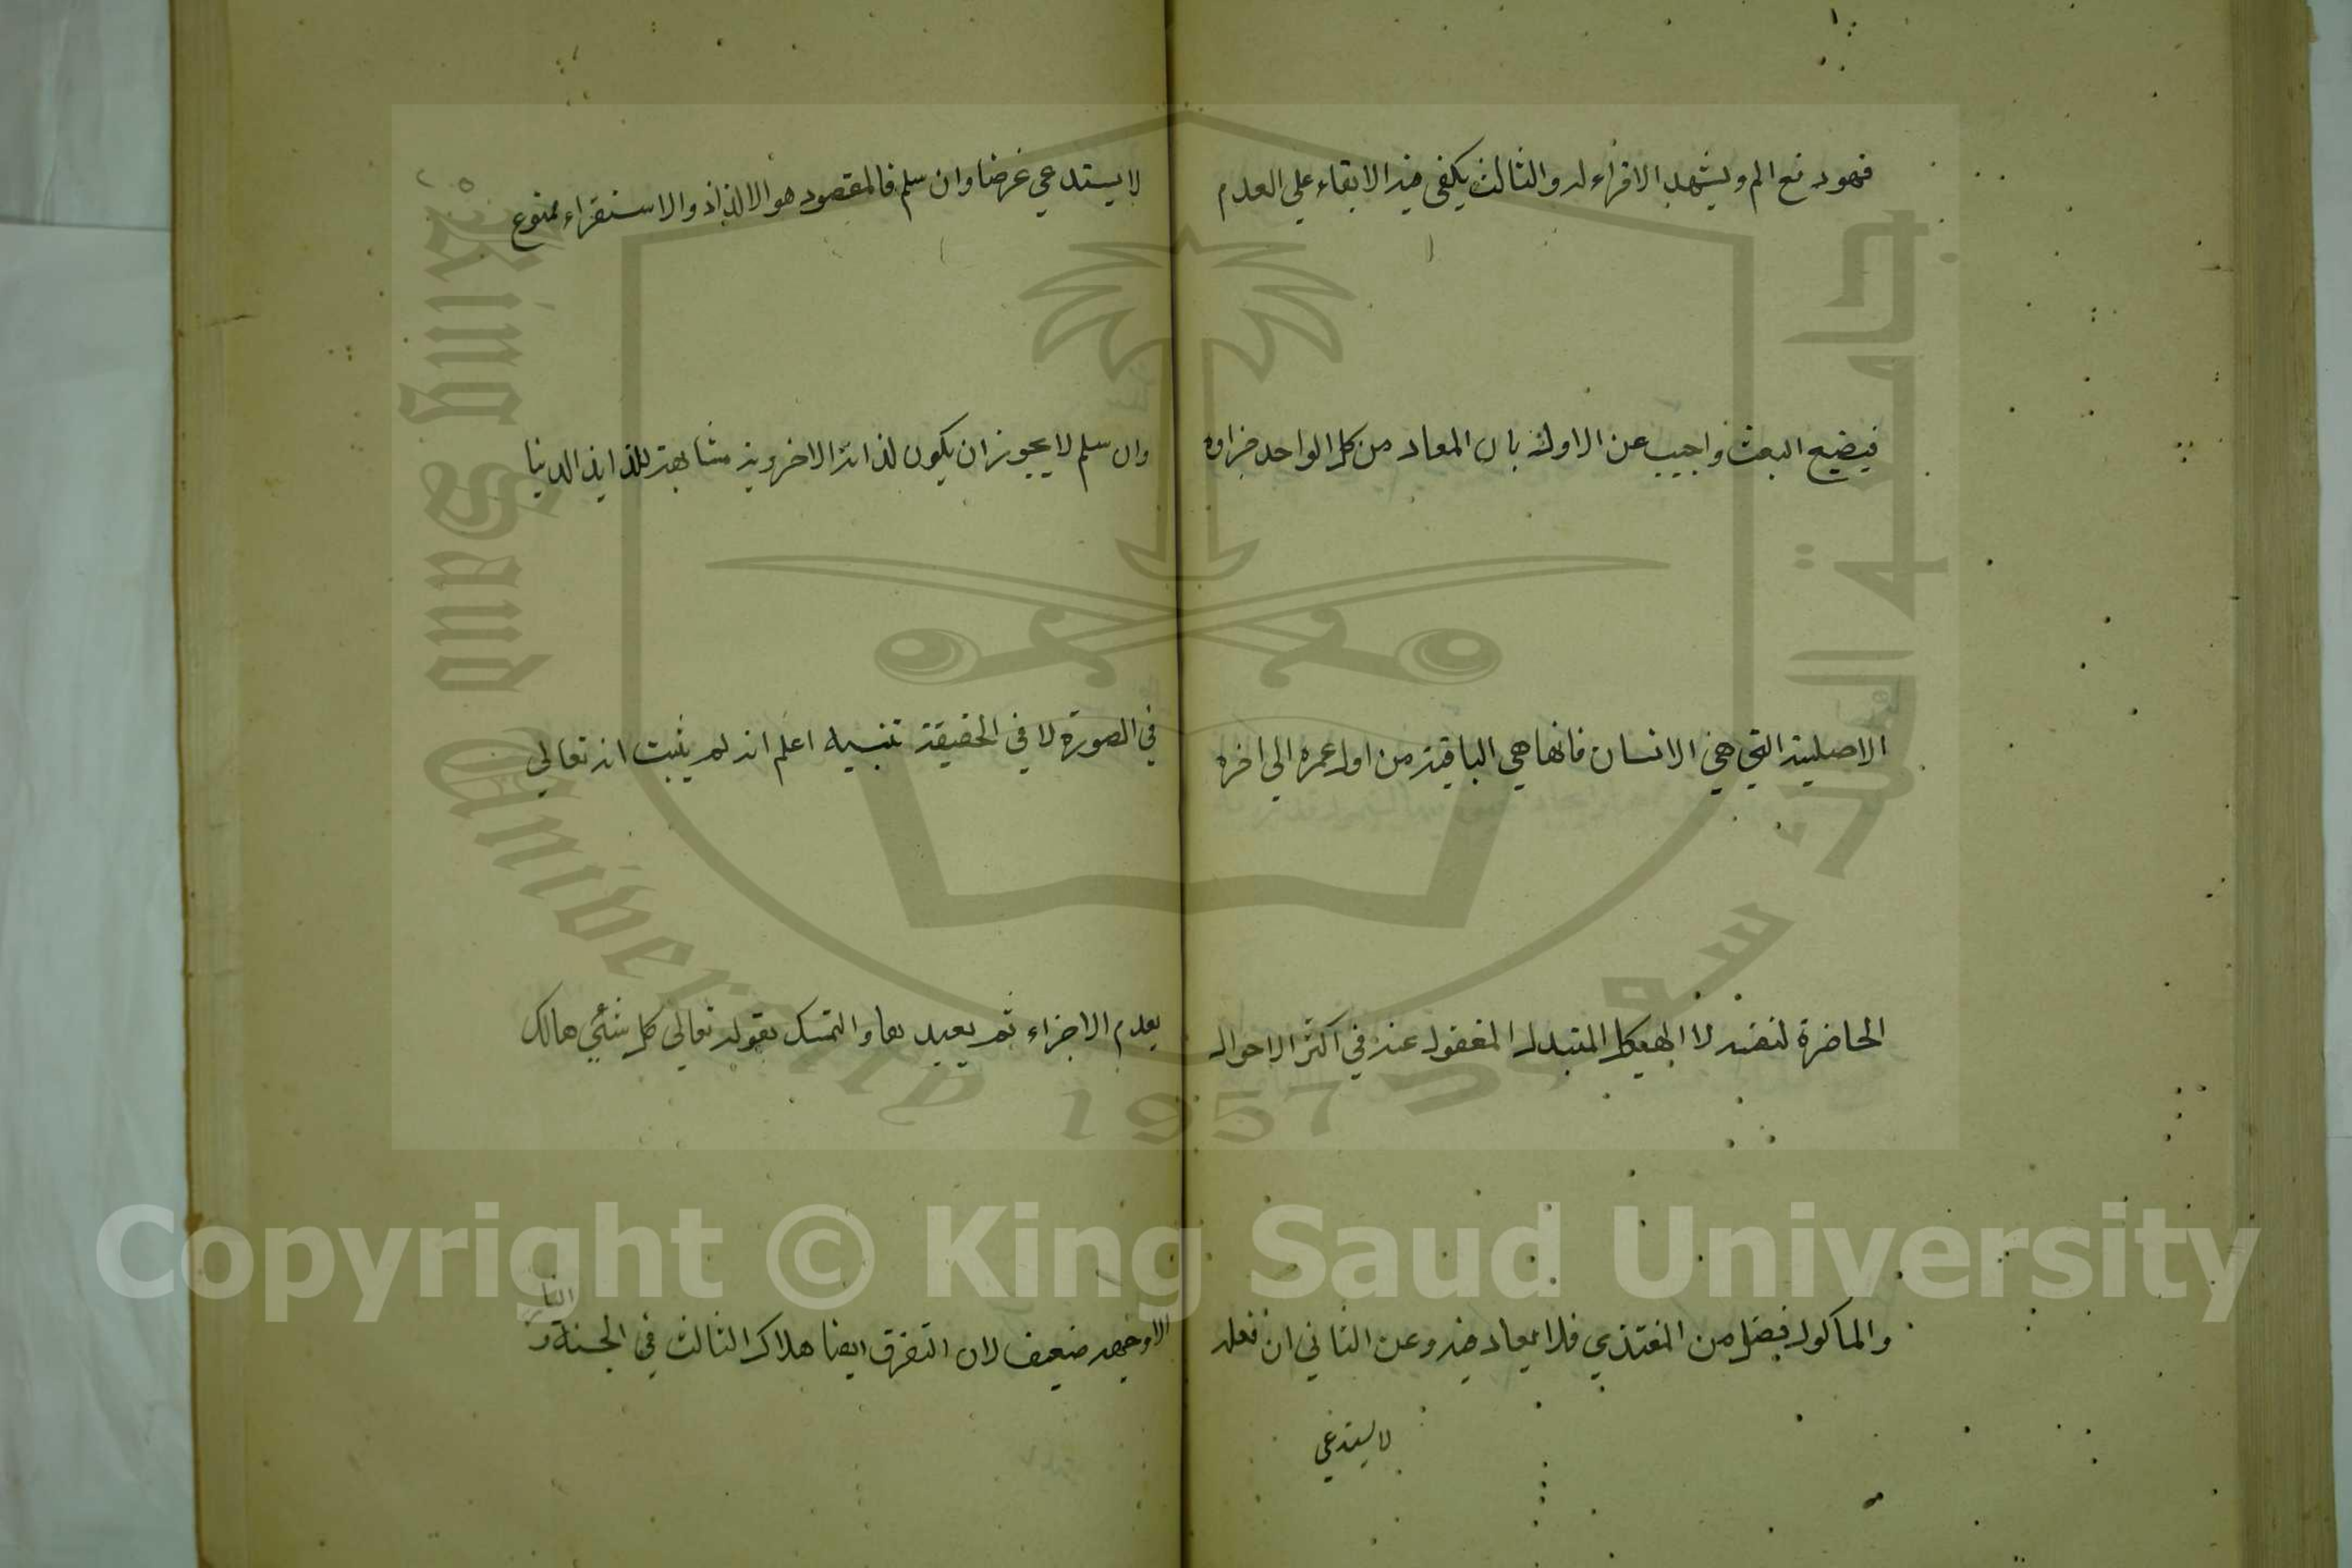 فهو دفع الم ويشهد الاقراء له والثالث يكفى فيه الابقاء على العدم
فيضيع البعث واجيب عن الاول بان المعاد من كل الواحد جزاوه
الاصلية التي هي الانسان فانها هي الباقية من اول عمره الي اخره
الحاضرة لنفسه لا الهيكل المتبدل المغفول عنه في اكثر الاحوال
والماكول فضل من المغتذي فلا يعاد فيه وعن الثاني ان فعله
لا يستدعي
لا يستدعي غرضا وان سلم فالمقصود هو الالذاذ والاستقراء ممنوع
وان سلم لا يجوز ان يكون لذائذ الاخروية مشابهة للذايذ الدنيا
في الصورة لا في الحقيقة تنبيه اعلم انه لم يثبت انه تعالي
يعدم الاجزاء ثم يعيدها والتمسك بقوله تعالى كل شئي هالك
الا وجهه ضعيف لان التفرق ايضا هلاك الثالث في الجنة و
النار
King Saud University
1957
جامعة الملك سعود
Copyright © King Saud University